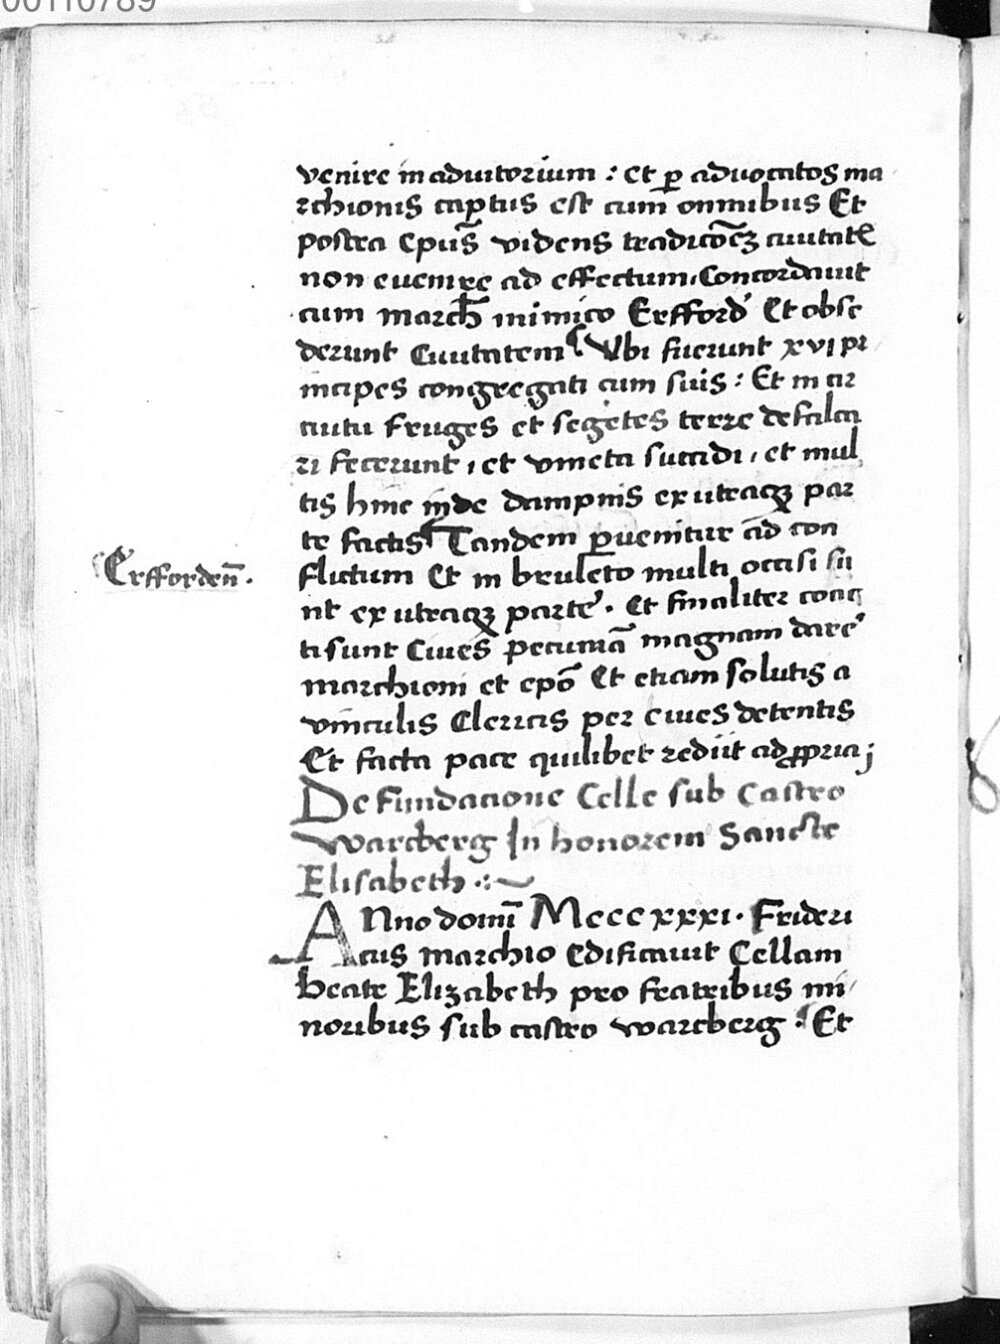 00110789
venire in adiutorium : et ꝑ aduocatos ma
rchionis captus est cum omnibus Et
postea Ep̄us videns tradicōeꝫ ciuitatꝭ
non euenire ad effectum, Concordauit
cum march̄ inimico Erfford̕ Et obse
derunt Ciuitatem Vbi fuerunt xvi pr
incipes congregati cum suis : Et in cir
cuitu fruges et segetes terre defalca
ri fecerunt, et vineta succidi, et mul
tis hinc inde dampnis ex utraqꝫ par
te factis Tandem ꝑuenitur ad con
Erfforden̄.
flictum Et in bruleto multi occisi su
nt ex utraqꝫ parte. Et finaliter coac
ti sunt Ciues pecuniā magnam dare
marchioni et epō Et etiam solutis a
vinculis Clericis per ciues detentis
Et facta pace quilibet rediit ad ꝓpria;
De fundacione Celle sub Castro
Wartberg In honorem Sancte
Elisabeth .:~
ANno domī Mcccxxxi. Frideri
cus marchio edificauit Cellam
beate Elizabeth pro fratribus mi
noribus sub castro wartberg. Et